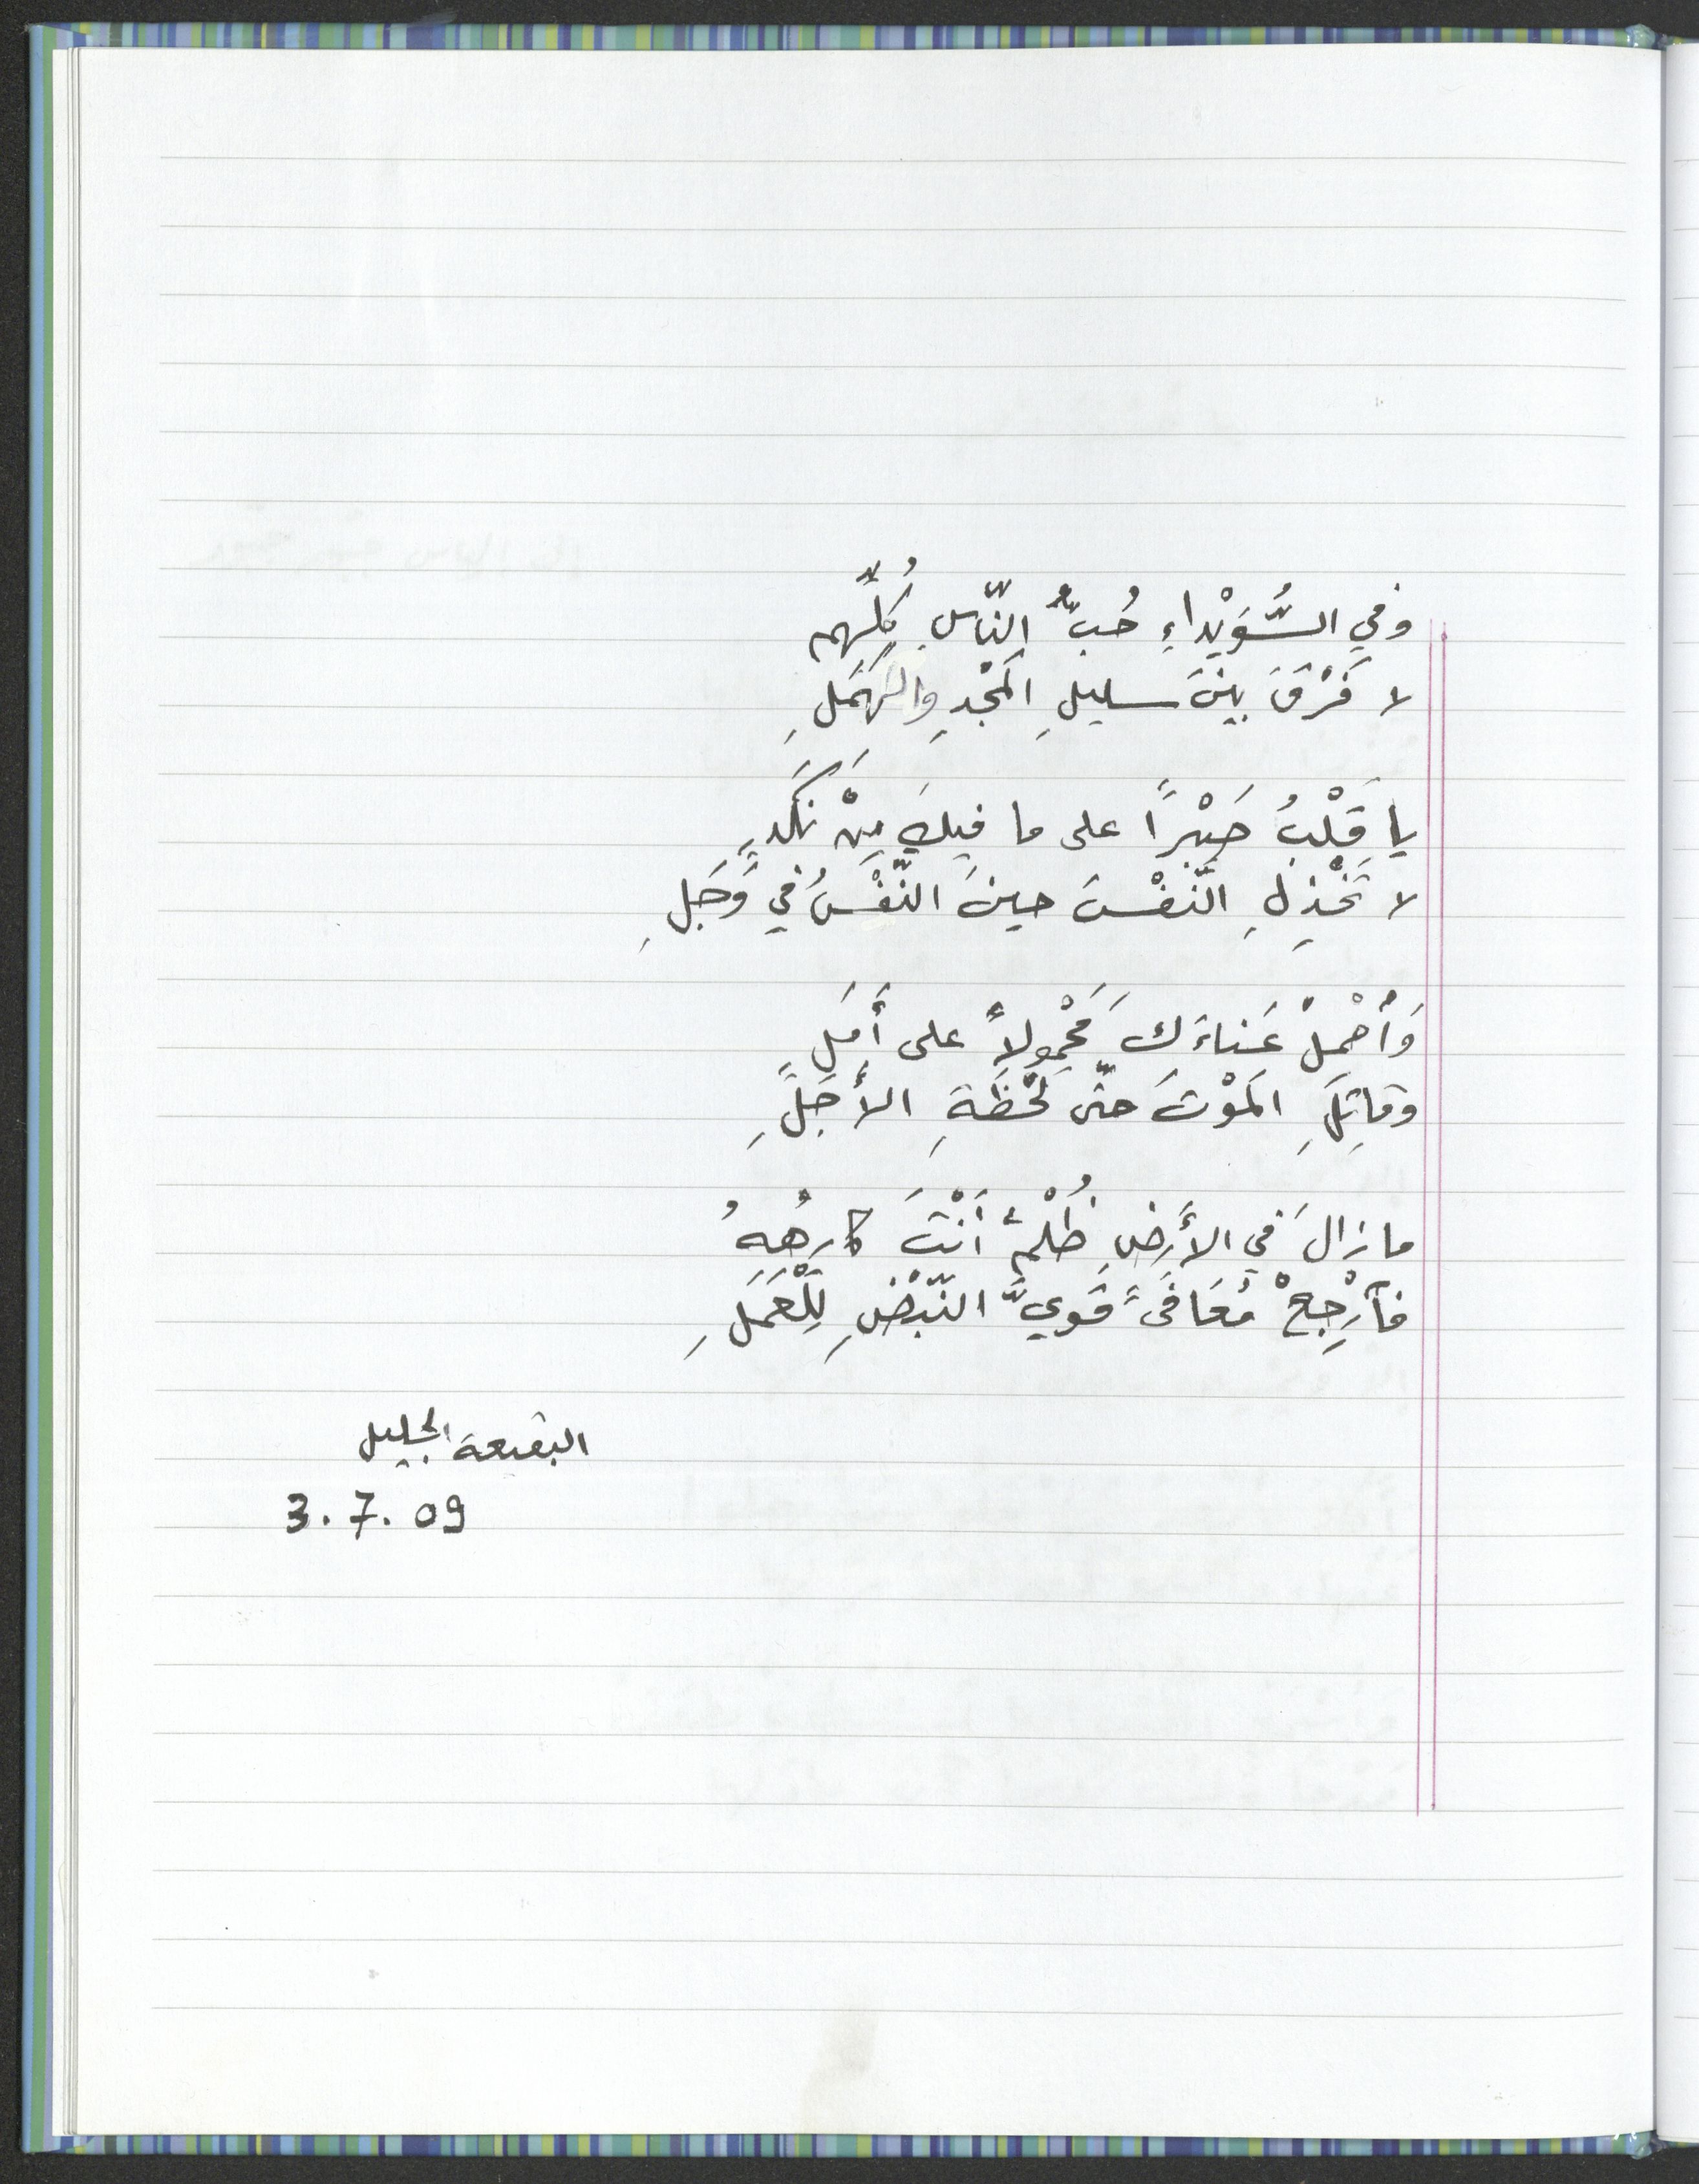 وفي السُّوَيْداءِ حُبُّ النّاسِ كُلِّهم
لا فَرْقَ بينَ سليلِ المَجْدِ والهَمَلِ
يا قَلْبُ صَبْرًا على ما فيكَ مِنْ نَكَدٍ
لا تَخْذِلِ النَّفْسَ حينَ النَّفْسُ في وَجَلِ
وَاْحْمِلْ عَناءَك مَحْمِولاً على أَمَلٍ
وقاتِلِ المَوْتَ حتّى لَحْظَةِ الأَجَلِ
ما زالَ في الأَرضِ ظُلْمٌ أَنْتَ كارِهُهُ
فاْرْجِعْ مُعَافَىً قَويَّ النَّبْضِ لِلْعَمَلِ
البقيعة الجليل
3.7.09